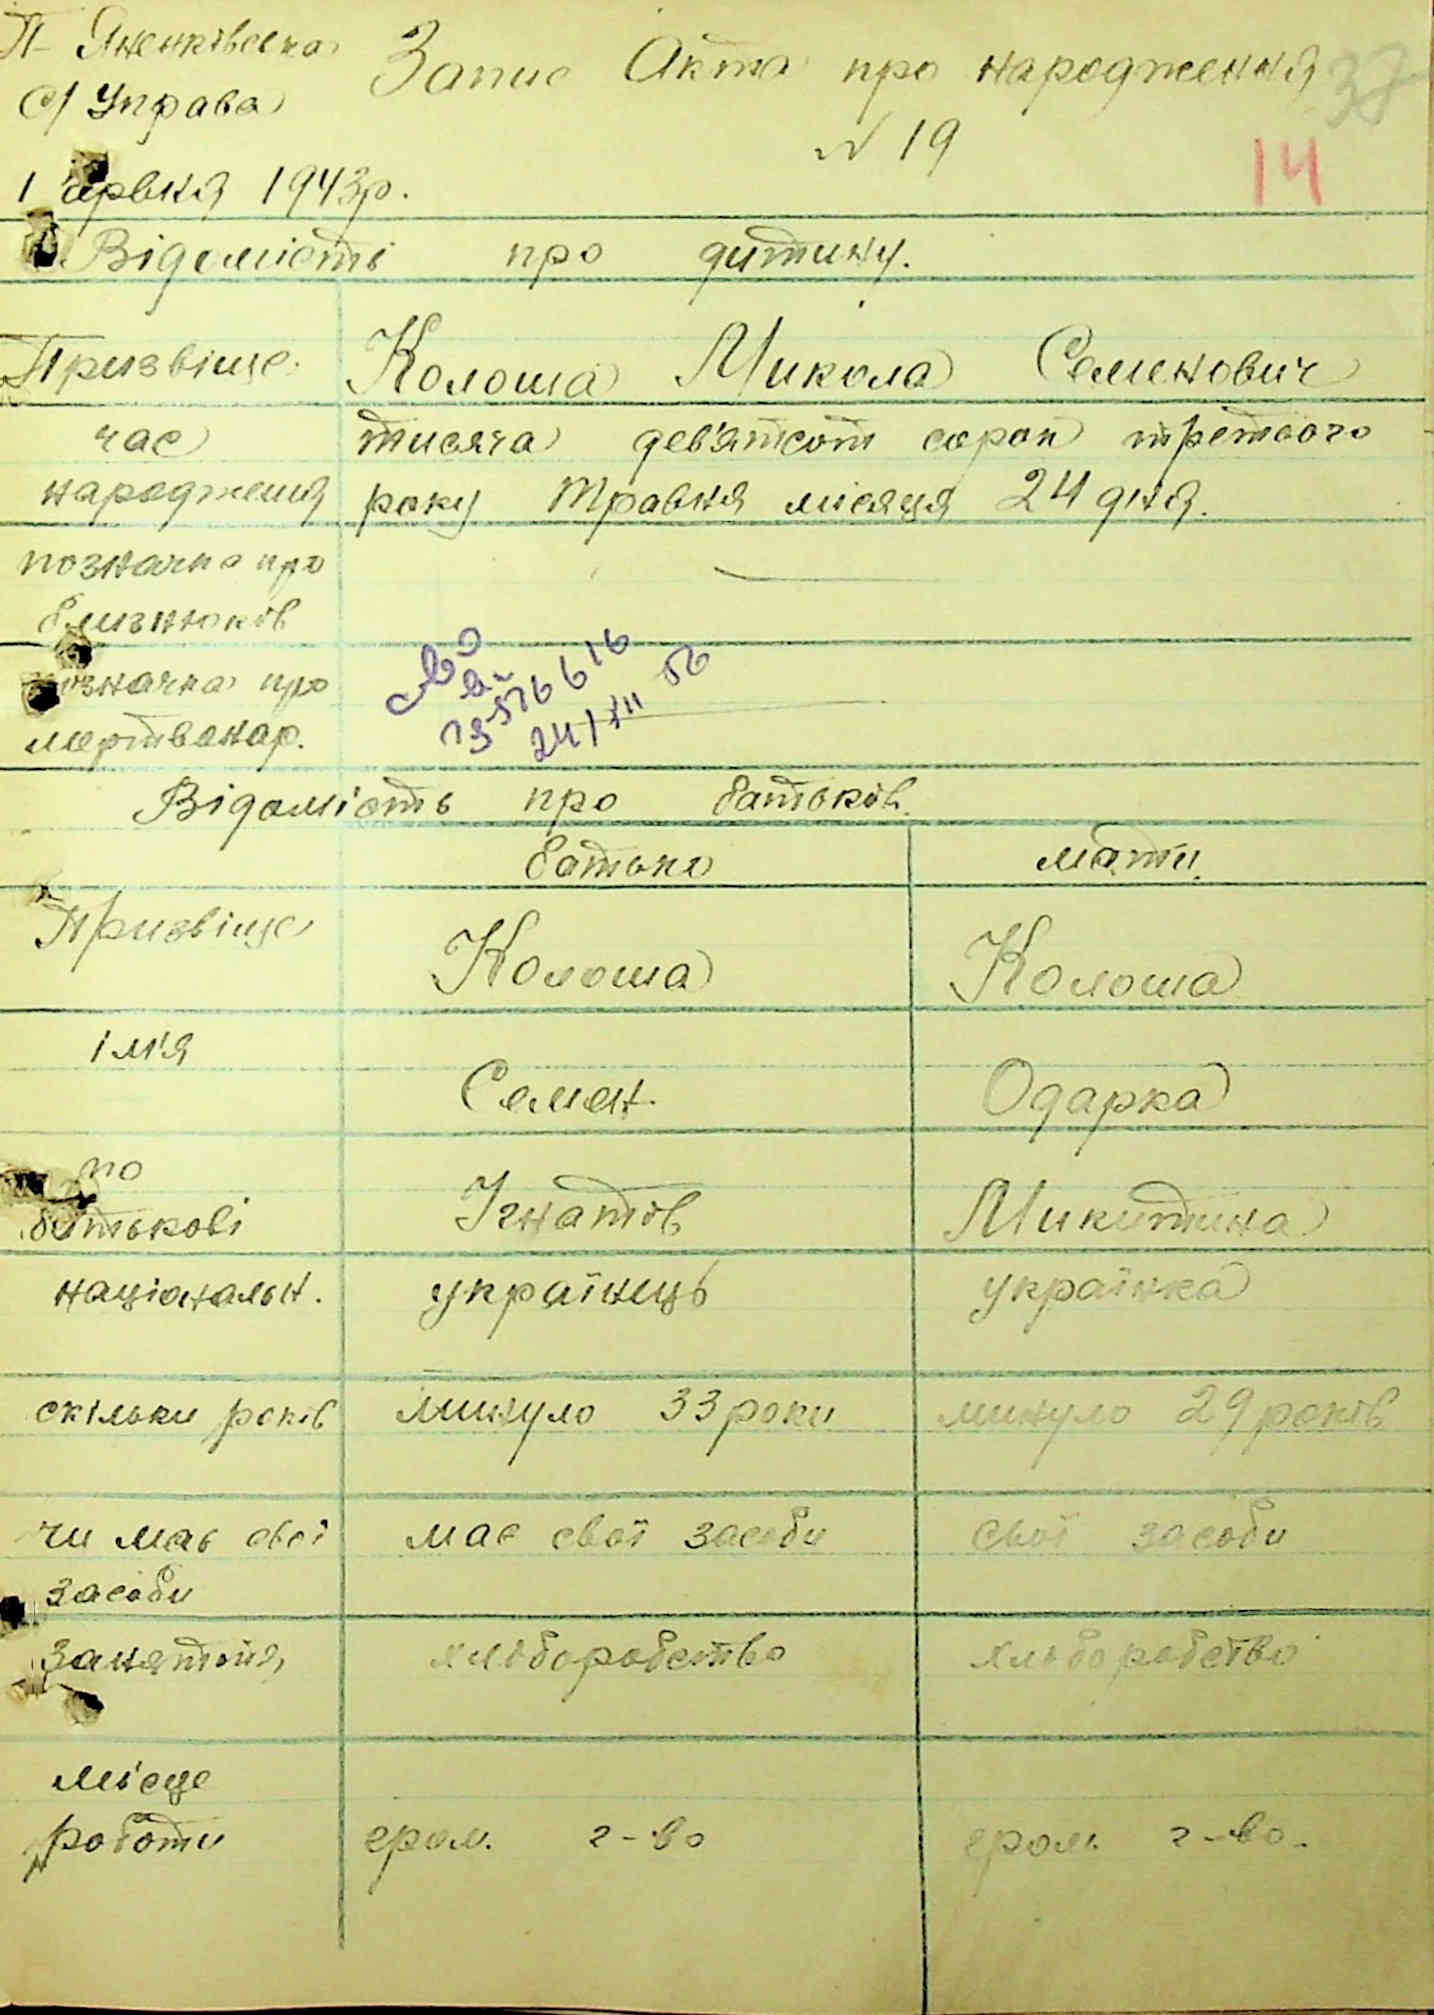 П-Яненківська
с/Управа
Запис Акта про народження
37
N 19
14
1 червня 1943р.
Відомість про дитину.
Призвіще Колоша Микола Семенович
час тисяча дев'ятсот сорок третього
народження року травня місяця 24 дня.
позначка про
близнюків
позначка про
мертвонар.
24/XII 56
Відомість про батьків.
батько мати
Призвіще Колоша Колоша
ім'я Семен. Одарка
по
батькові Ігнатів Микитина
національн. українець українка
скільки років минуло 33 роки минуло 29 років
чи має свої має свої засоби свої засоби
засоби
Заняття хліборобство хліборобство
місце
роботи гром. г-во гром. г-во.